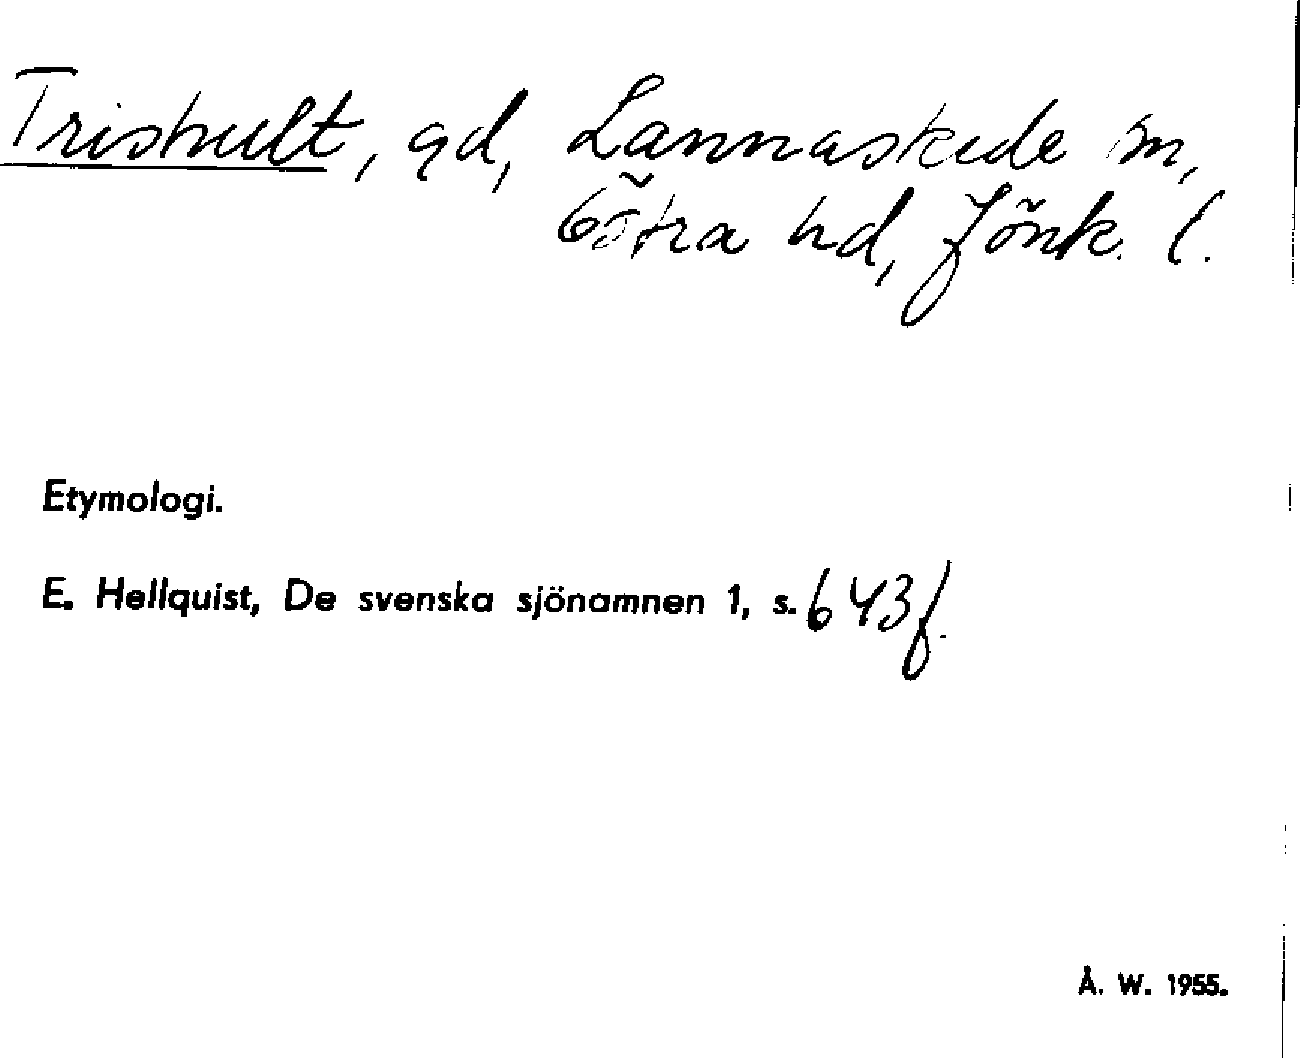 Trishult, gd, Lannaskede sn,
Östra hd, Jönk. l.
Etymologi.
E. Hellquist, De svenska sjönamnen 1, s. 643 f.
Å. W. 1955.